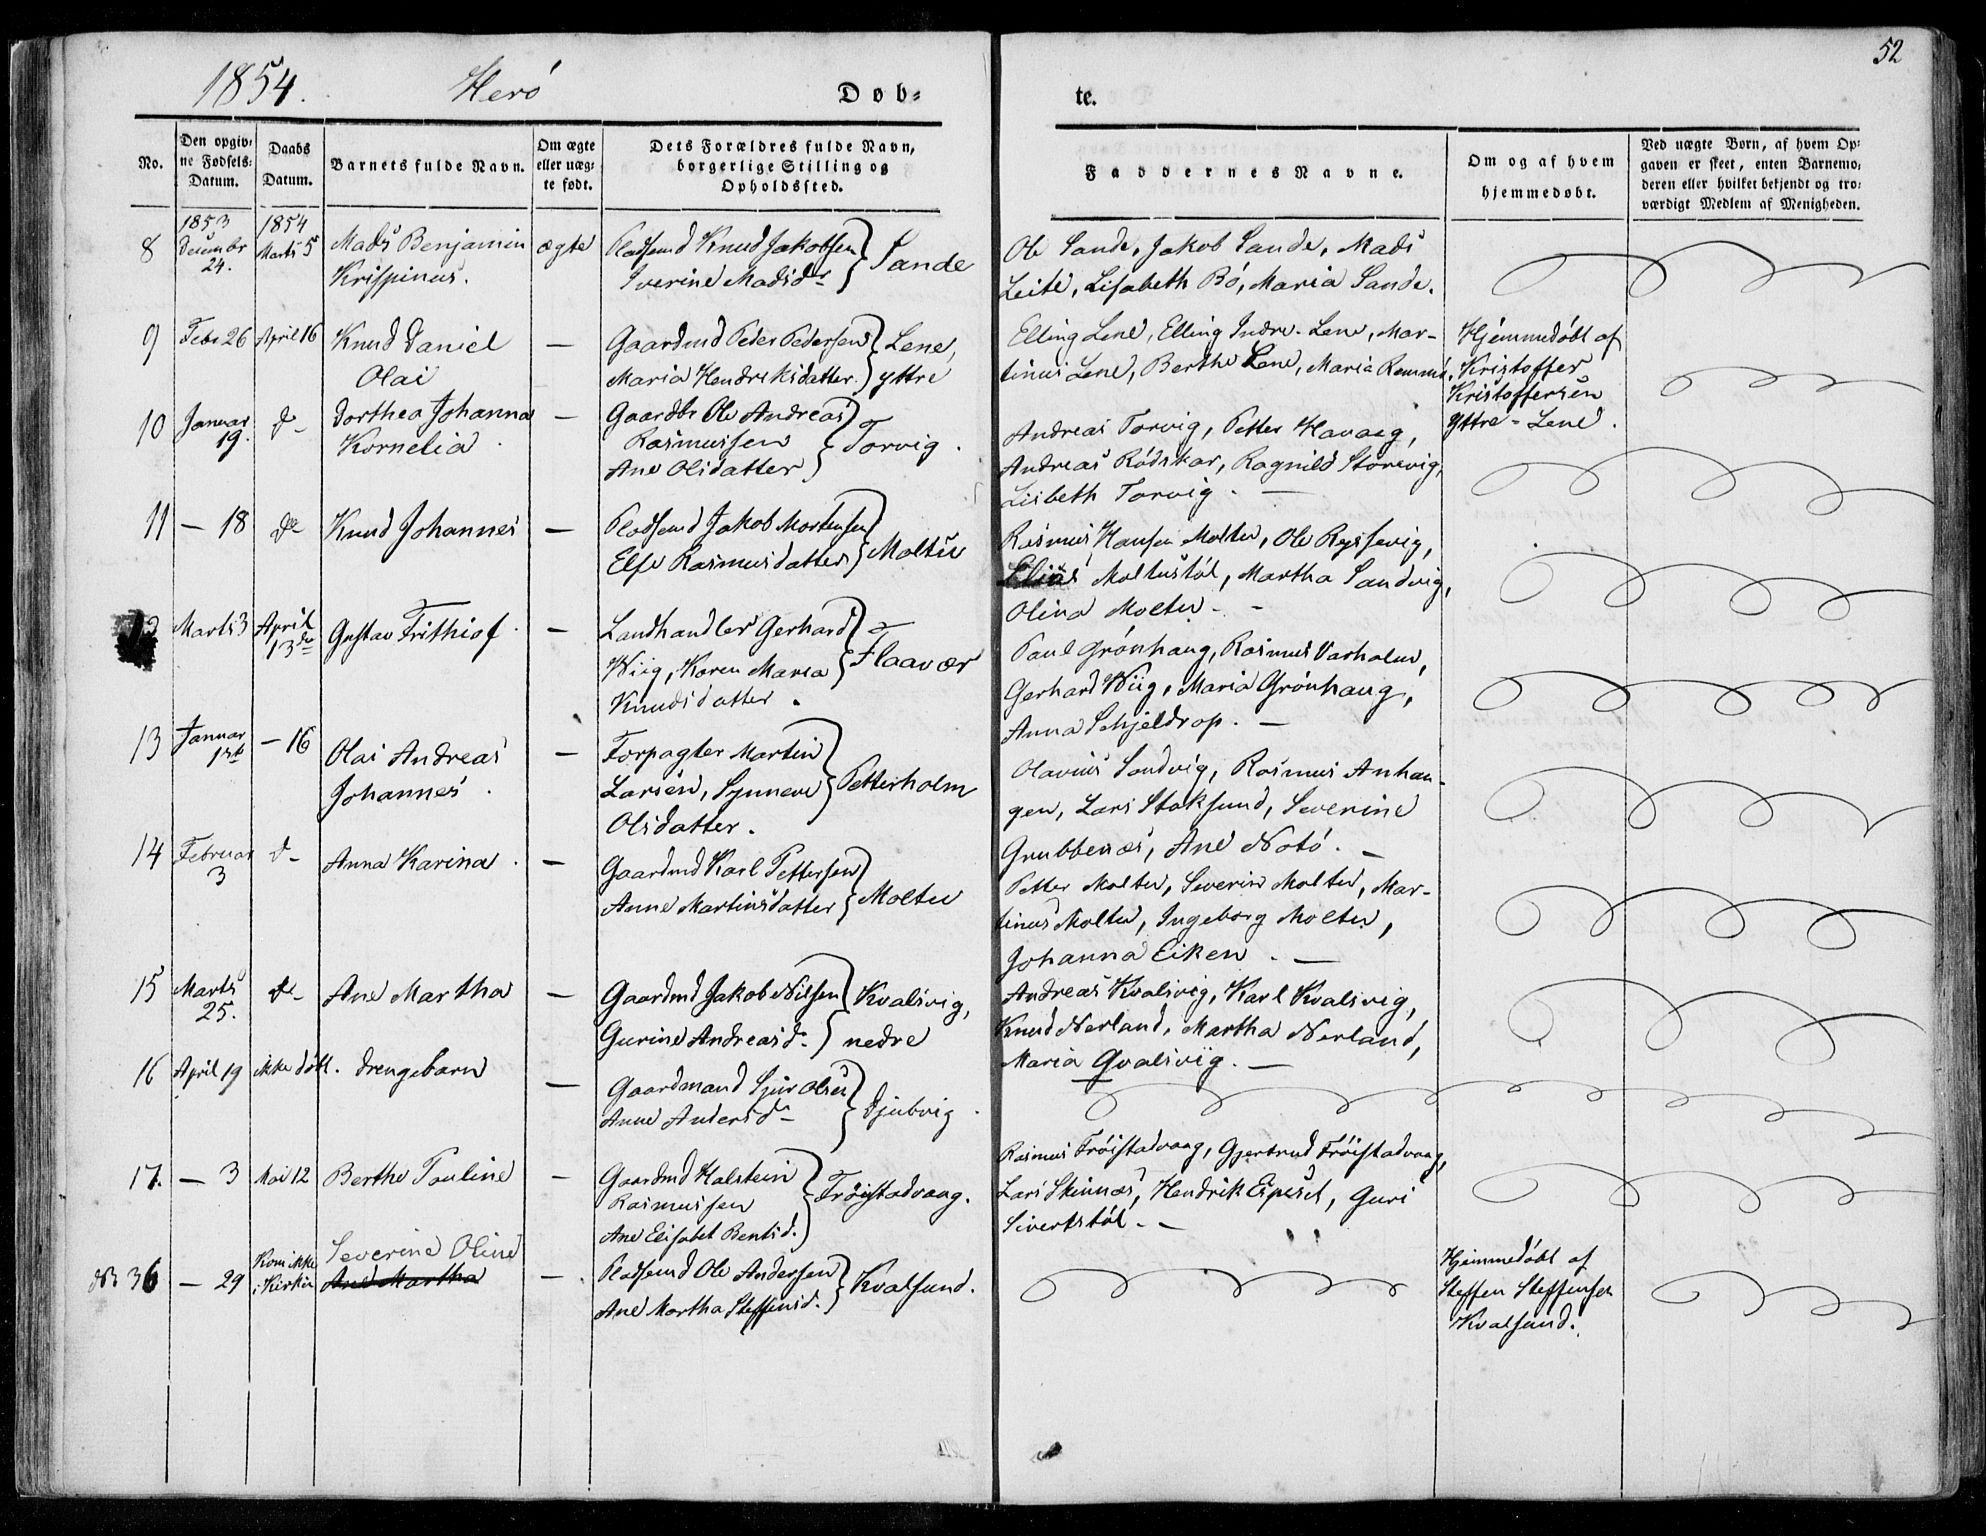 52
1854. Herö Døb- te.
No.
Den opgiv-
ne Fødsels-
Datum.
Daabs
Datum.
Barnets fulde Navn.
Om ægte
eller uæg-
te født.
Dets Forældres fulde Navn,
borgerlige Stilling og
Opholdssted.
Faddernes Navne.
Om og af hvem
hjemmedøbt.
Ved uægte Børn, af hvem Op-
gaven er skeet, enten Barnemo-
deren eller hvilket bekjendt og tro-
værdigt Medlem af Menigheden.
8
1853
December
24.
1854
Marts 5
Mads Benjamin
Krispinus.
ægte
Pladsmd Knud Jakobsen
Iverine Madsdr
Sande
Ole Sande, Jakob Sande, Mads
Leite, Lisabeth Bö, Maria Sande.
9
Febr 26
April 16
Knud Daniel
Olai
—
Gaardmd Peder Pedersen
Maria Hendriksdatter.
Lene,
yttre
Elling Lene, Elling Indre-Lene, Mar-
tinus Lene, Berthe Lene, Maria Remmö.
Hjemmedöbt af
Kristoffer
Kristoffersen
Yttre-Lene.
10
Januar
19.
do
Dorthea Johanna
Kornelia.
—
Gaardbr Ole Andreas
Rasmussen
Ane Olsdatter
Torvig.
Andreas Torvig, Petter Havaag,
Andreas Rödskar, Ragnild Storevig,
Lisbeth Torvig. —
11
— 18
do
Knud Johannes
—
Pladsmd Jakob Mortensen
Else Rasmusdatter
Moltu
Rasmus Hansen Moltu, Ole Rejsevig,
Elias Moltustöl, Martha Sandvig,
Olina Moltu. —
Marts 3
April
13de
Gustav Frithiof.
—
Landhandler Gerhard
Wiig, Karen Maria
Knudsdatter.
Flaavær
Paul Grönhaug, Rasmus Varholm,
Gerhard Wiig, Maria Grönhaug,
Anna Schjeldrop. —
13
Januar
— 16
Olai Andreas
Johannes.
—
Forpagter Martin
Larsen, Synneve
Olsdatter.
Petterholm
Olavius Sandvig, Rasmus Anhau-
gen, Lars Stoksund, Severine
Grubbenæs, Ane Notö. —
14
Februar
3
do
Anna Karina.
—
Gaardmd Karl Pettersen
Anne Martinsdatter
Moltu
Petter Moltu, Severin Moltu, Mar-
tinus Moltu, Ingeborg Moltu,
Johanna Eiken. —
15
Marts
25.
do
Ane Martha
—
Gaardmd Jakob Nilsen
Gurine Andreasd.
Kvalsvig,
nedre
Andreas Kvalsvig, Karl Kvalsvig,
Knud Nerland, Martha Nerland,
Maria Qvalsviig. —
16
April 19
ikke döbt.
Drengebarn
—
Gaardmand Sjur Olsen
Anne Andersd.
Djubvig.
17.
— 3
Mai 12
Berthe Pauline
—
Gaardmd Halstein
Rasmussen
Ane Elisabet Bentsd.
Fröistadvaag.
Rasmus Fröistadvaag, Gjertrud Fröistadvaag,
Lars Skinnæs, Hendrik Espeset, Guri
Sivertstöl. —
NB 36
— 29
Kom ikke
i Kirken
Severine Oline
Ane Martha
—.
Pladsmd Ole Andersen
Ane Martha Steffensd.
Kvalsund.
Hjemmedöbt af
Steffen Steffensen
Kvalsund.